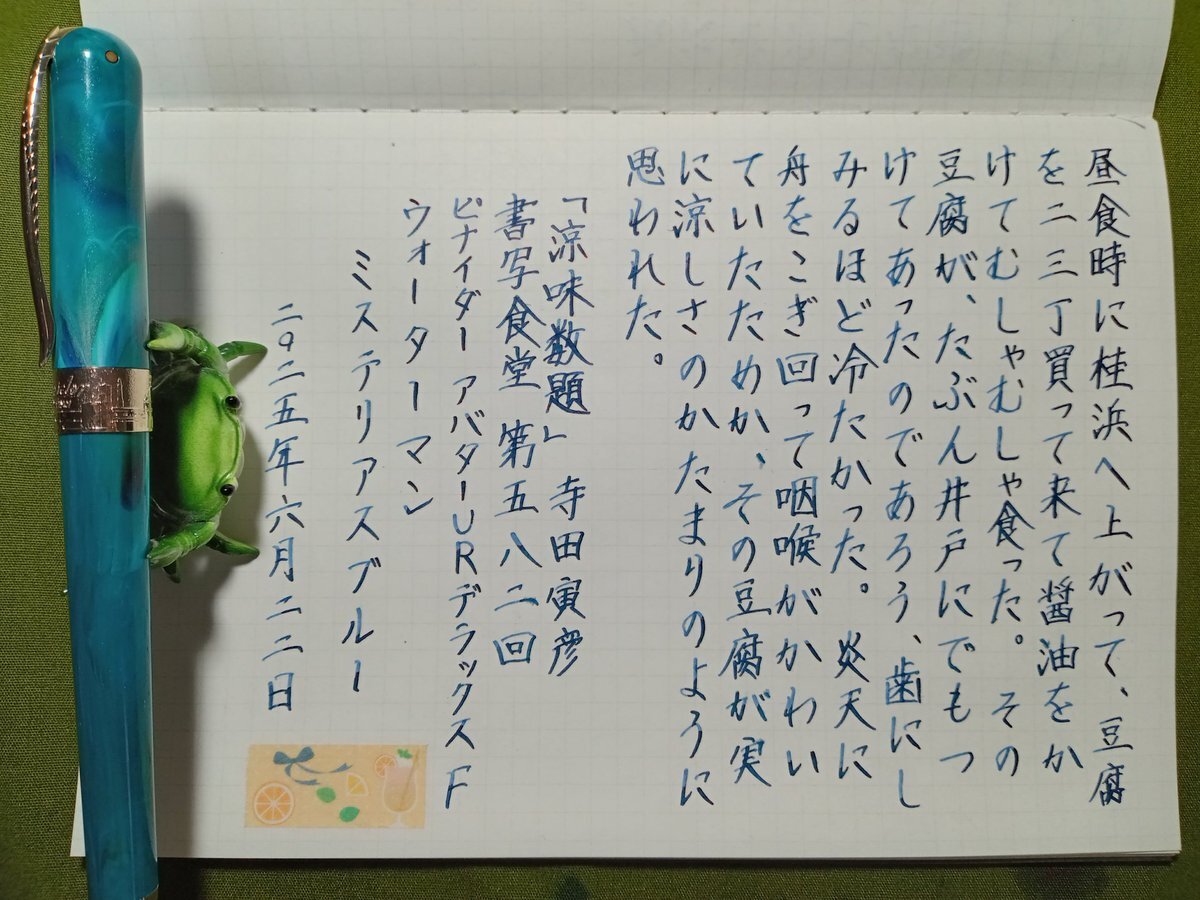 昼食時に桂浜へ上がって、豆腐
を二三丁買って来て醤油をか
けてむしゃむしゃ食った。その
豆腐が、たぶん井戸にでもつ
けてあったのであろう、歯にし
みるほど冷たかった。炎天に
舟をこぎ回って咽喉がかわい
ていたためか、その豆腐が実
に涼しさのかたまりのように
思われた。
「涼味数題」 寺田寅彦
書写食堂 第五八二回
ピナイダー アバターURデラックスF
ウォーターマン
ミステリアスブルー
二〇二五年六月二二日